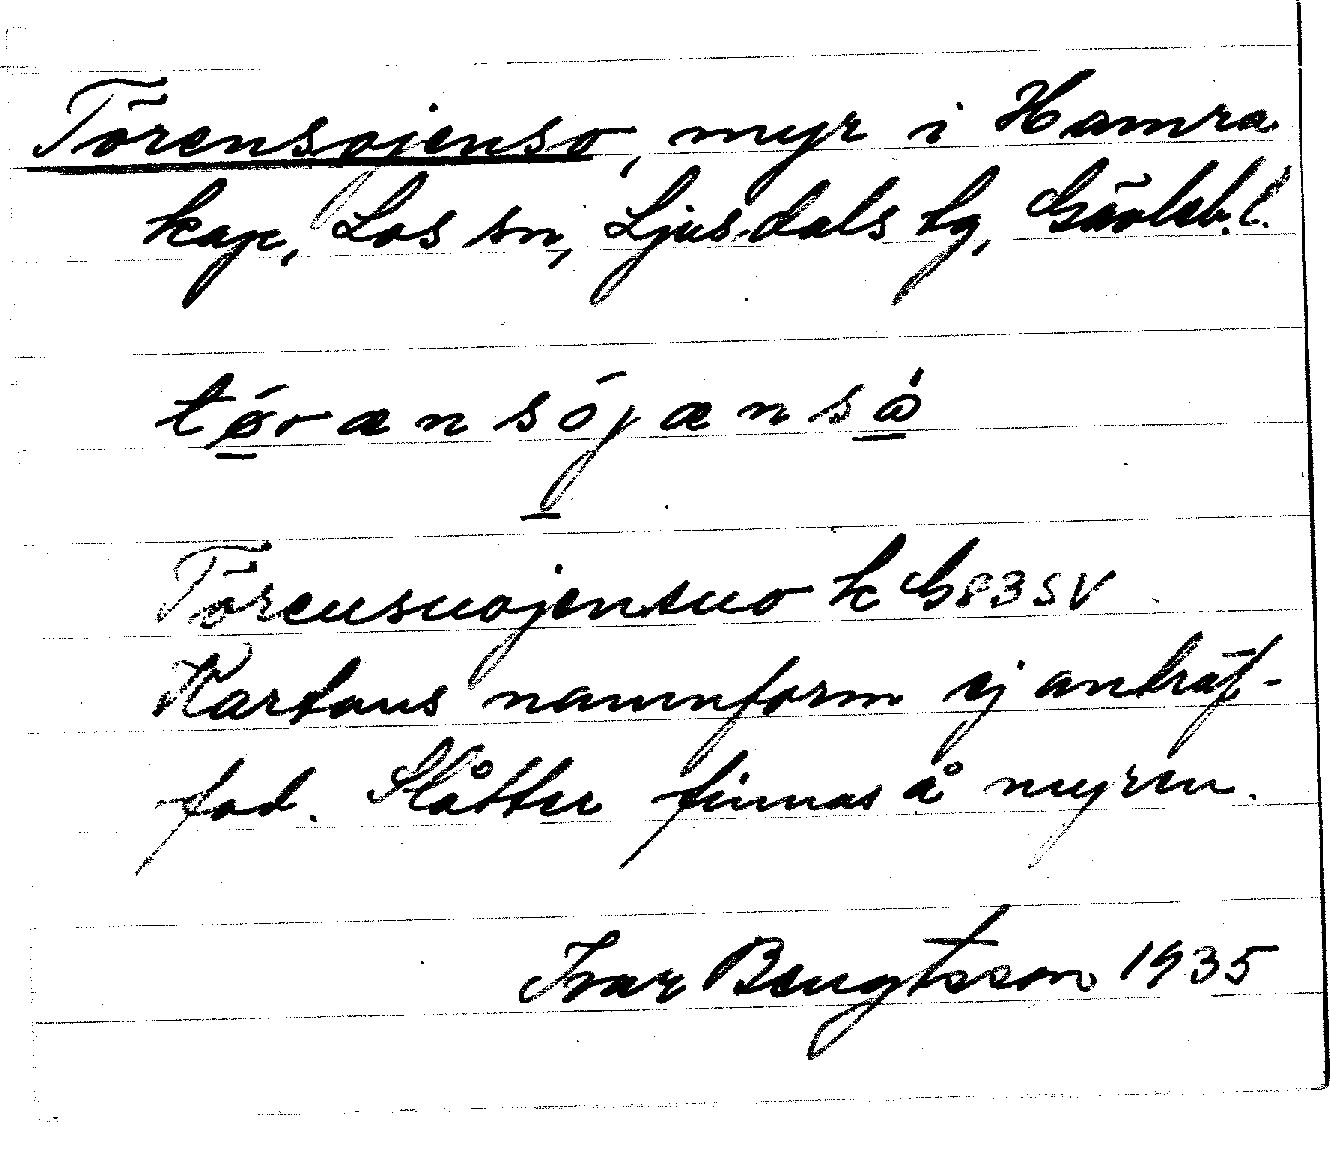 Törensojenso, myr i Hamra
kap, Los sn, Ljusdals tg, Gävleb. l.
tø̱rænsójænså̱
Törensuojensuo k G83SV
Kartans namnform ej anträf-
fad. Slåtter finnas å myren.
Ivar Bengtsson 1935